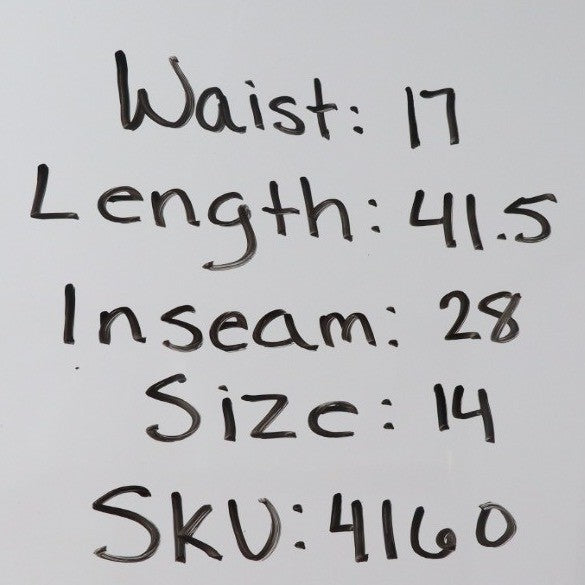 Waist: 17
Length: 41.5
Inseam: 28
Size: 14
SKU: 4160